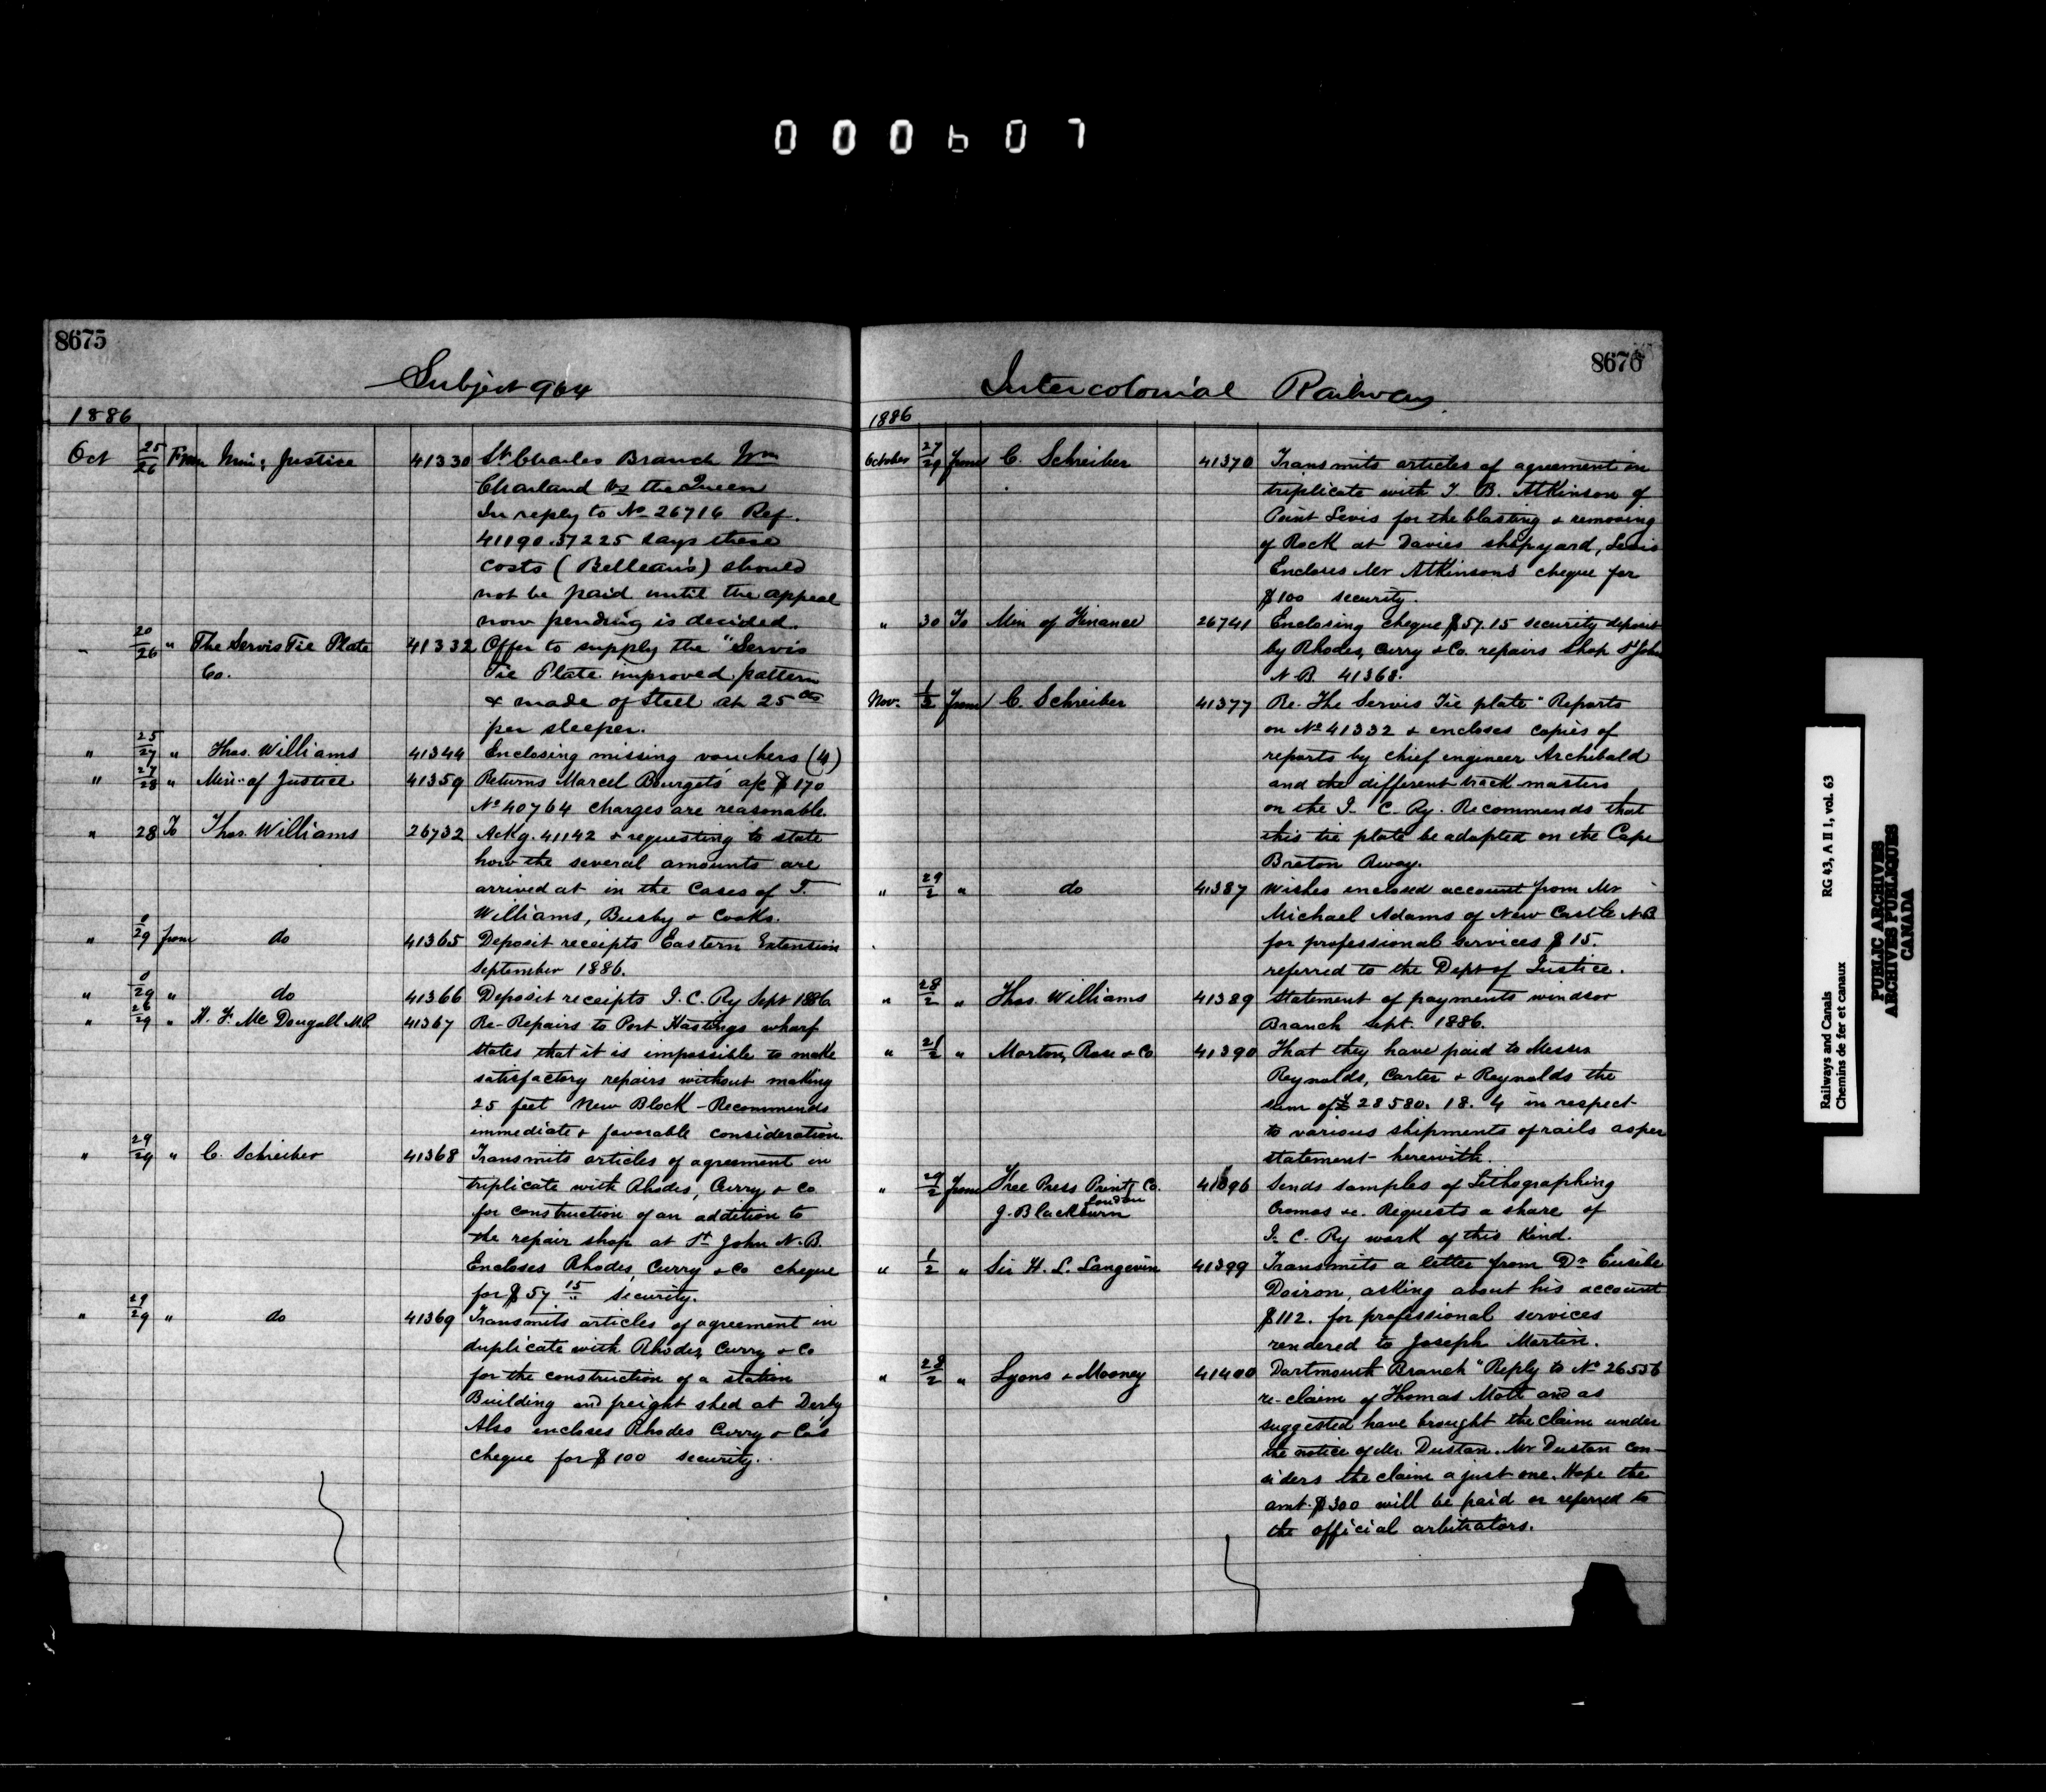 000607
8675
Subject 964
1886
Oct 25/26 From Min: Justice 41330 St Charles Branch Wm
Charland vs the Queen
In reply to No 26716 Ref.
41190.37225 says these
costs (Belleau's) should
not be paid until the appeal
now pending is decided.
" 20/26 " The Servis Tie Plate 41332 Offer to supply the "Servis
Co. Tie Plate improved pattern
& made of Steel at 25 cts
per sleeper.
" 25/27 " Thos. Williams 41344 Enclosing missing vouchers (4)
" 27/28 " Min. of Justice 41359 Returns Marcel Bourget's a/c $170
No 40764 charges are reasonable.
" 28 To Thos. Williams 26732 Ackg. 41142 & requesting to state
how the several amounts are
arrived at in the cases of T.
Williams, Busby & Cooks.
" 0/29 from do 41365 Deposit receipts Eastern Extension
September 1886.
" 0/29 " do 41366 Deposit receipts I.C. Ry Sept 1886
" 26/29 " H. F. Mc Dougall M.P. 41367 Re-Repairs to Port Hastings wharf
states that it is impossible to make
satisfactory repairs without making
25 feet New Block - Recommends
immediate & favorable consideration.
" 29/29 " C. Schreiber 41368 Transmits articles of agreement in
triplicate with Rhodes, Curry & Co
for construction of an addition to
the repair shop at St John N.B.
Encloses Rhodes, Curry & Co cheque
for $57 15 security.
" 29/29 " do 41369 Transmits articles of agreement in
duplicate with Rhodes, Curry & Co
for the construction of a station
Building and freight shed at Derby
Also encloses Rhodes Curry & Co's
cheque for $100 security.
8676
Intercolonial Railway
1886
October 27/29 from C. Schreiber 41370 Transmits articles of agreement in
triplicate with T. B. Atkinson of
Point Levis for the blasting & removing
of Rock at Davies shipyard, Levis
Encloses Mr Atkinson's cheque for
$100 security.
" 30 To Min of Finance 26741 Enclosing cheque $57.15 security deposit
by Rhodes, Curry & Co. repairs shop St John
N.B. 41368.
Nov. 1/2 from C. Schreiber 41377 Re-The Servis Tie plate" Reports
on No 41332 & encloses copies of
reports by chief engineer Archibald
and the different track masters
on the I. C. Ry. Recommends that
this tie plate be adopted on the Cape
Breton Rway.
" 29/2 " do 41387 Wishes enclosed account from Mr
Michael Adams of New Castle N.B.
for professional services $15.
referred to the Dept of Justice.
" 28/2 " Thos. Williams 41389 Statement of payments Windsor
Branch Sept. 1886.
" 21/2 " Morton, Rose & Co 41390 That they have paid to Messrs
Reynolds, Carter & Reynolds the
sum of £28580. 18. 4 in respect
to various shipments of rails as per
statement herewith.
" 29/2 from Free Press Printg Co. 41396 Sends samples of Lithographing
London
J. Blackburn Cromos &c. Requests a share of
I. C. Ry work of this kind.
" 1/2 " Sir H. L. Langevin 41399 Transmits a letter from Dr Eusebe
Doiron, asking about his account
$112. for professional services
rendered to Joseph Martin.
" 28/2 " Lyons & Mooney 41400 Dartmouth Branch "Reply to No 26556
re-claim of Thomas Mott and as
suggested have brought the claim under
the notice of Mr. Dustan. Mr Dustan con-
siders the claim a just one. Hope the
amt. $300 will be paid or referred to
the official arbitrators.
Railways and Canals RG 43, A II 1, vol. 63
Chemins de fer et canaux
PUBLIC ARCHIVES
ARCHIVES PUBLIQUES
CANADA